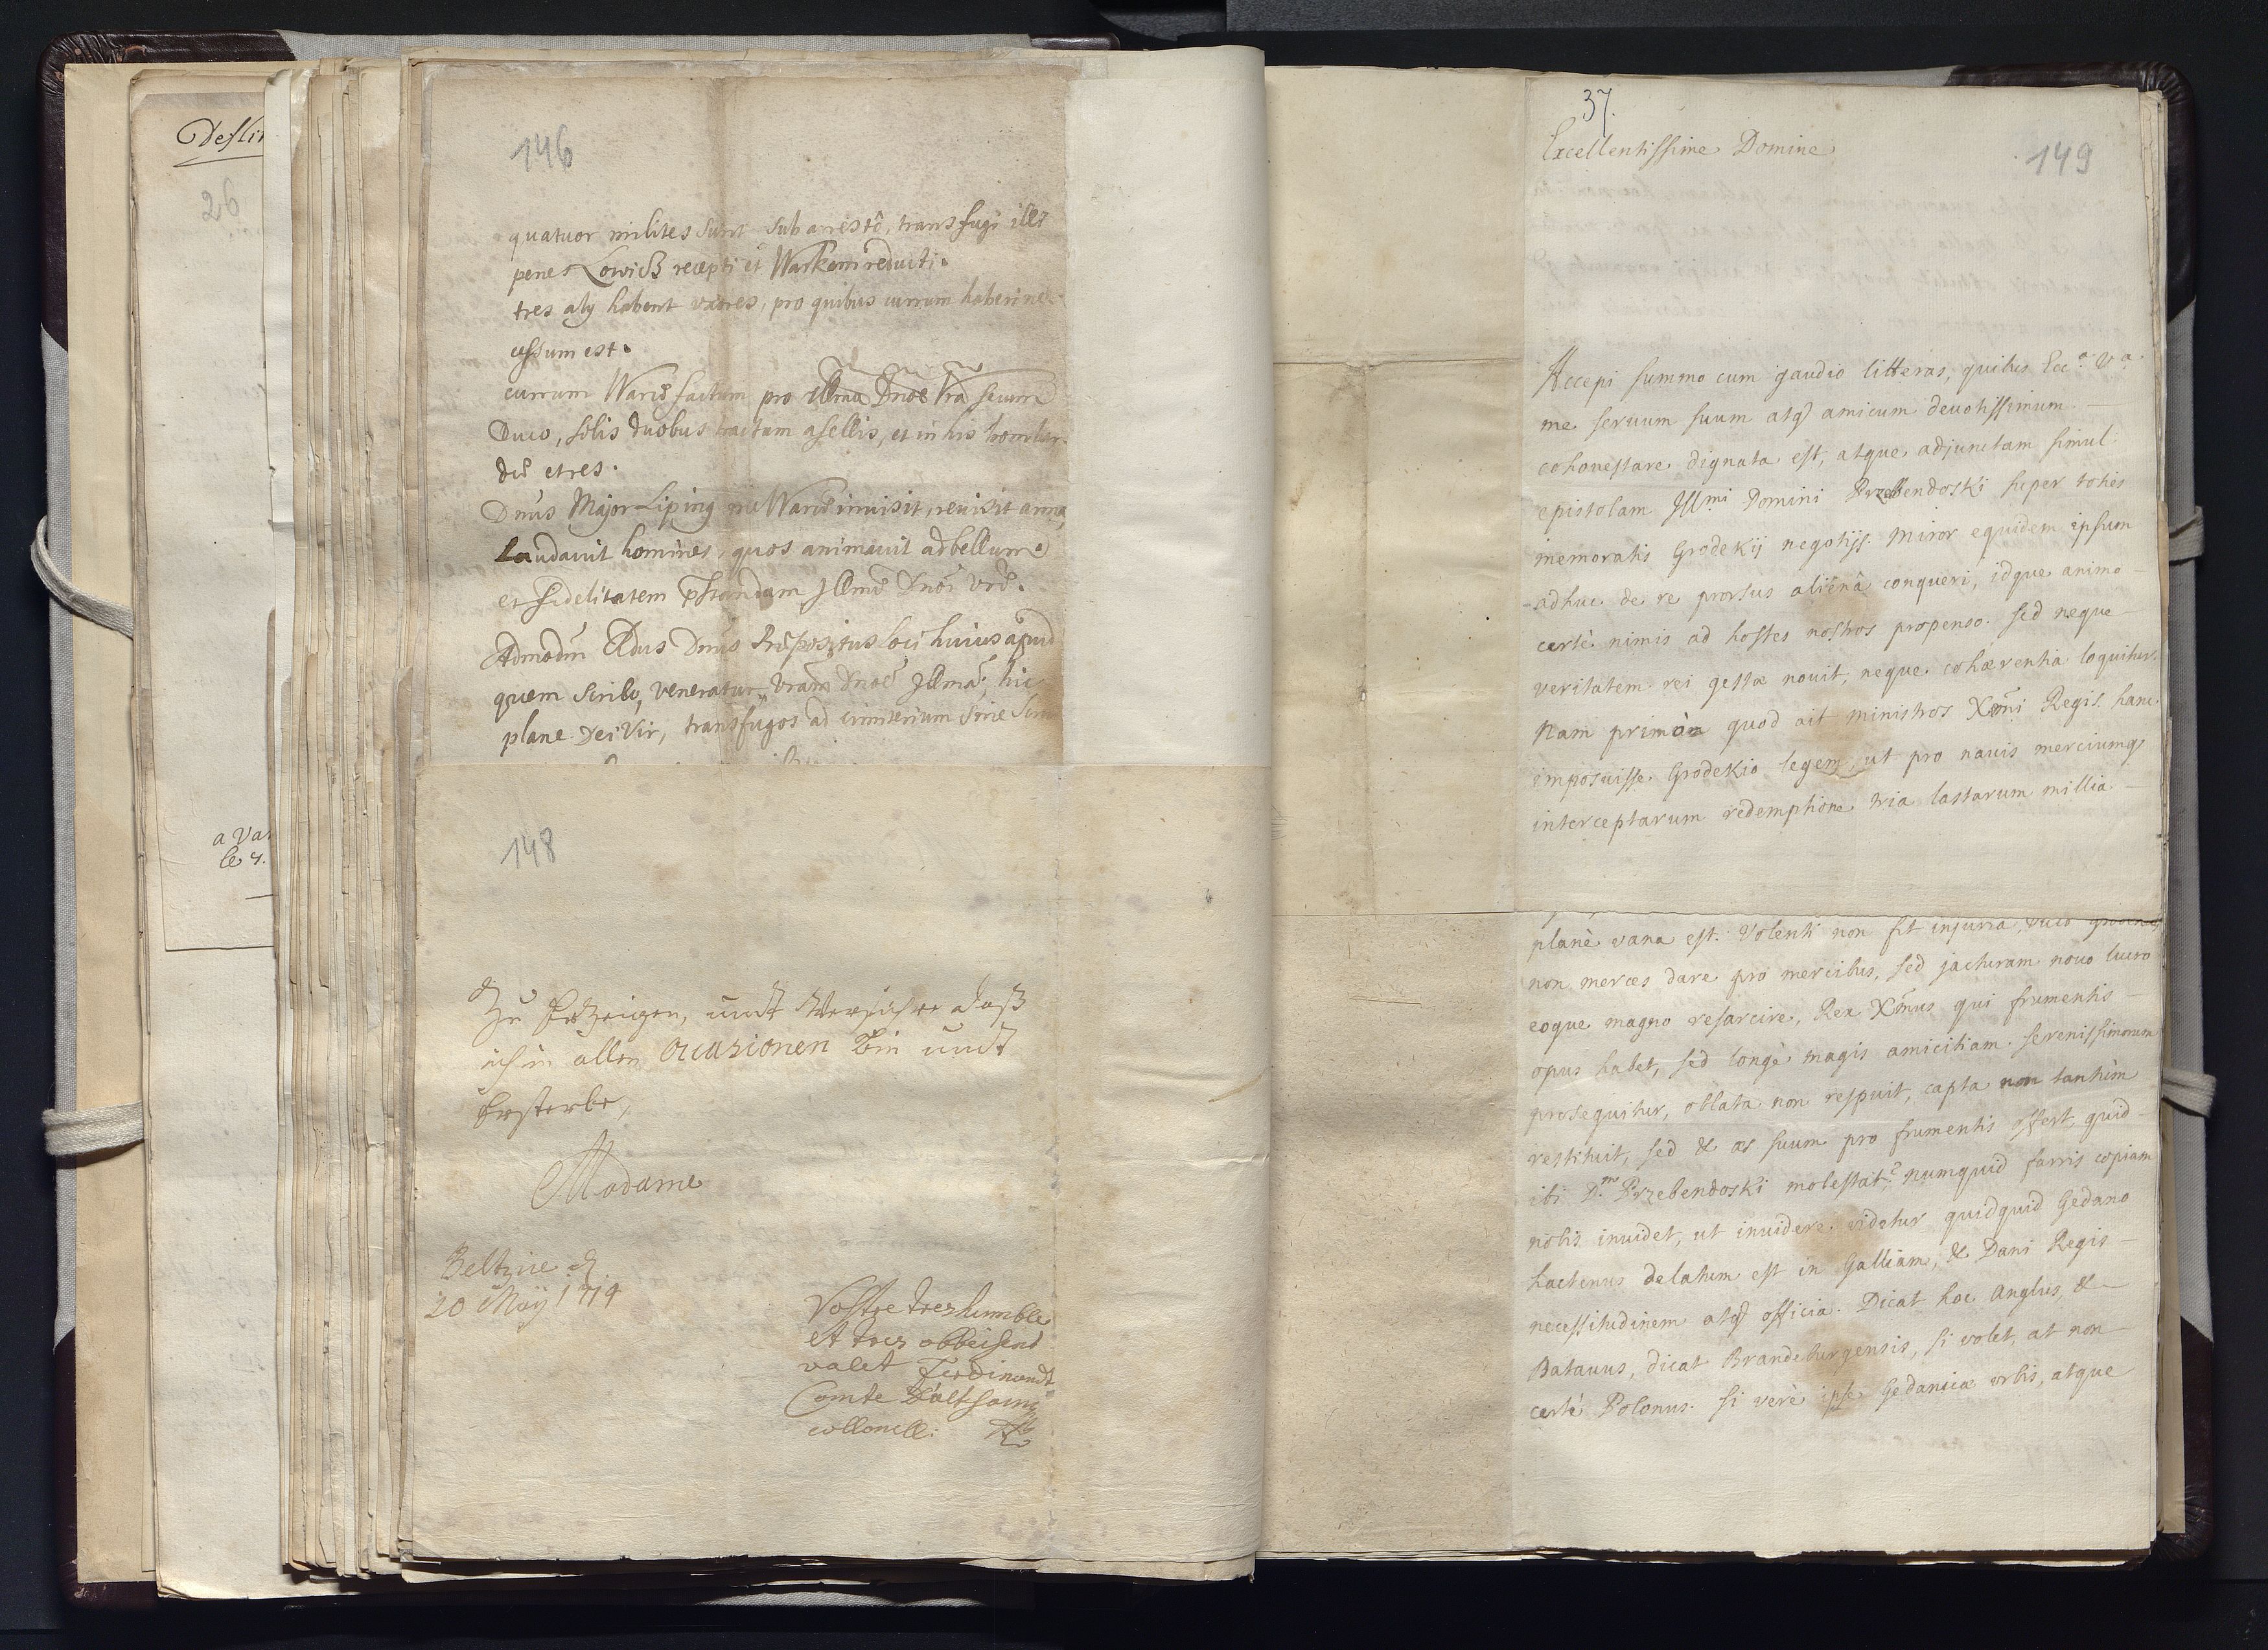 Deſti
26
a Var
le 4.
146
quatuor milites sunt sub arrestô, transfugi illi
penes Lowicß recepti et Warkam reducti.
tres alÿ habent uxores, pro quibus currum haberi ne-
cessum est.
currum factum pro Illma Dnoe Vra
Duco, solis duobus tractum asellis, et in his
et res.
Dnus Major Liping invisit, revisit arma,
laudavit homines, quos animavit ad bellum
et fidelitatem Illmæ Dnoi vræ.
Admodũ Rdus Dnus Præpositus loci huius apud
quem scribo, veneratur Vram Dnoẽ Illmã, hic
plane Dei Vir, transfugos ad cimiterium sine
148
Zu Erzeigen, undt Versichre daß
ich in allen Occasionen Bin undt
Ersterbe,
Madame
20 Maÿ 1714
Vostre tres humble
et tres obbeisent
valet Ferdinandt
Comte
collonell:
37.
149
Excellentiſſime Domine
Accepi summo cum gaudio litteras, quibus Ecc.a V.a
me seruum suum atq3 amicum deuotiſſimum
cohoneſtare dignata eſt, atque adjunctam simul
epistolam Ill.mi Domini Przebendoski super toties
memoratis Grodekij negotijs. Miror equidem ipsum
adhuc de re prorsus alienâ conqueri, idque animo
certè nimis ad hostes nostros propenso. Sed neque
veritatem rei gestæ novit, neque cohærentia loquitur.
Nam primò quod ait ministros Xmi Regis hanc
imposuiſſe Grodekio legem, ut pro nauis merciumq3
interceptarum redemptione tria lastarum millia
planè vana eſt. Volenti non fit injuria,
non merces dare pro mercibus, sed jacturam nouo lucro
eoque magno resarcire, Rex Xmus qui frumentis
opus habet, sed longè magis amicitiam Sereniſſimorum
prosequitur, oblata non respuit, capta non tantùm
restituit, sed & æs suum pro frumentis offert, quid
ibi D.m Przebendoski moleſtat? numquid farris copiam
nobis inuidet, ut inuidere videtur quidquid Gedano
hactenus delatum eſt in Galliam, & Dani Regis
neceſſitudinem atq3 officia. Dicat hoc Anglus, &
Batauus, dicat Brandeburgensis, si volet, at non
certè Polonus. Si verè ipse Gedanicæ urbis, atque